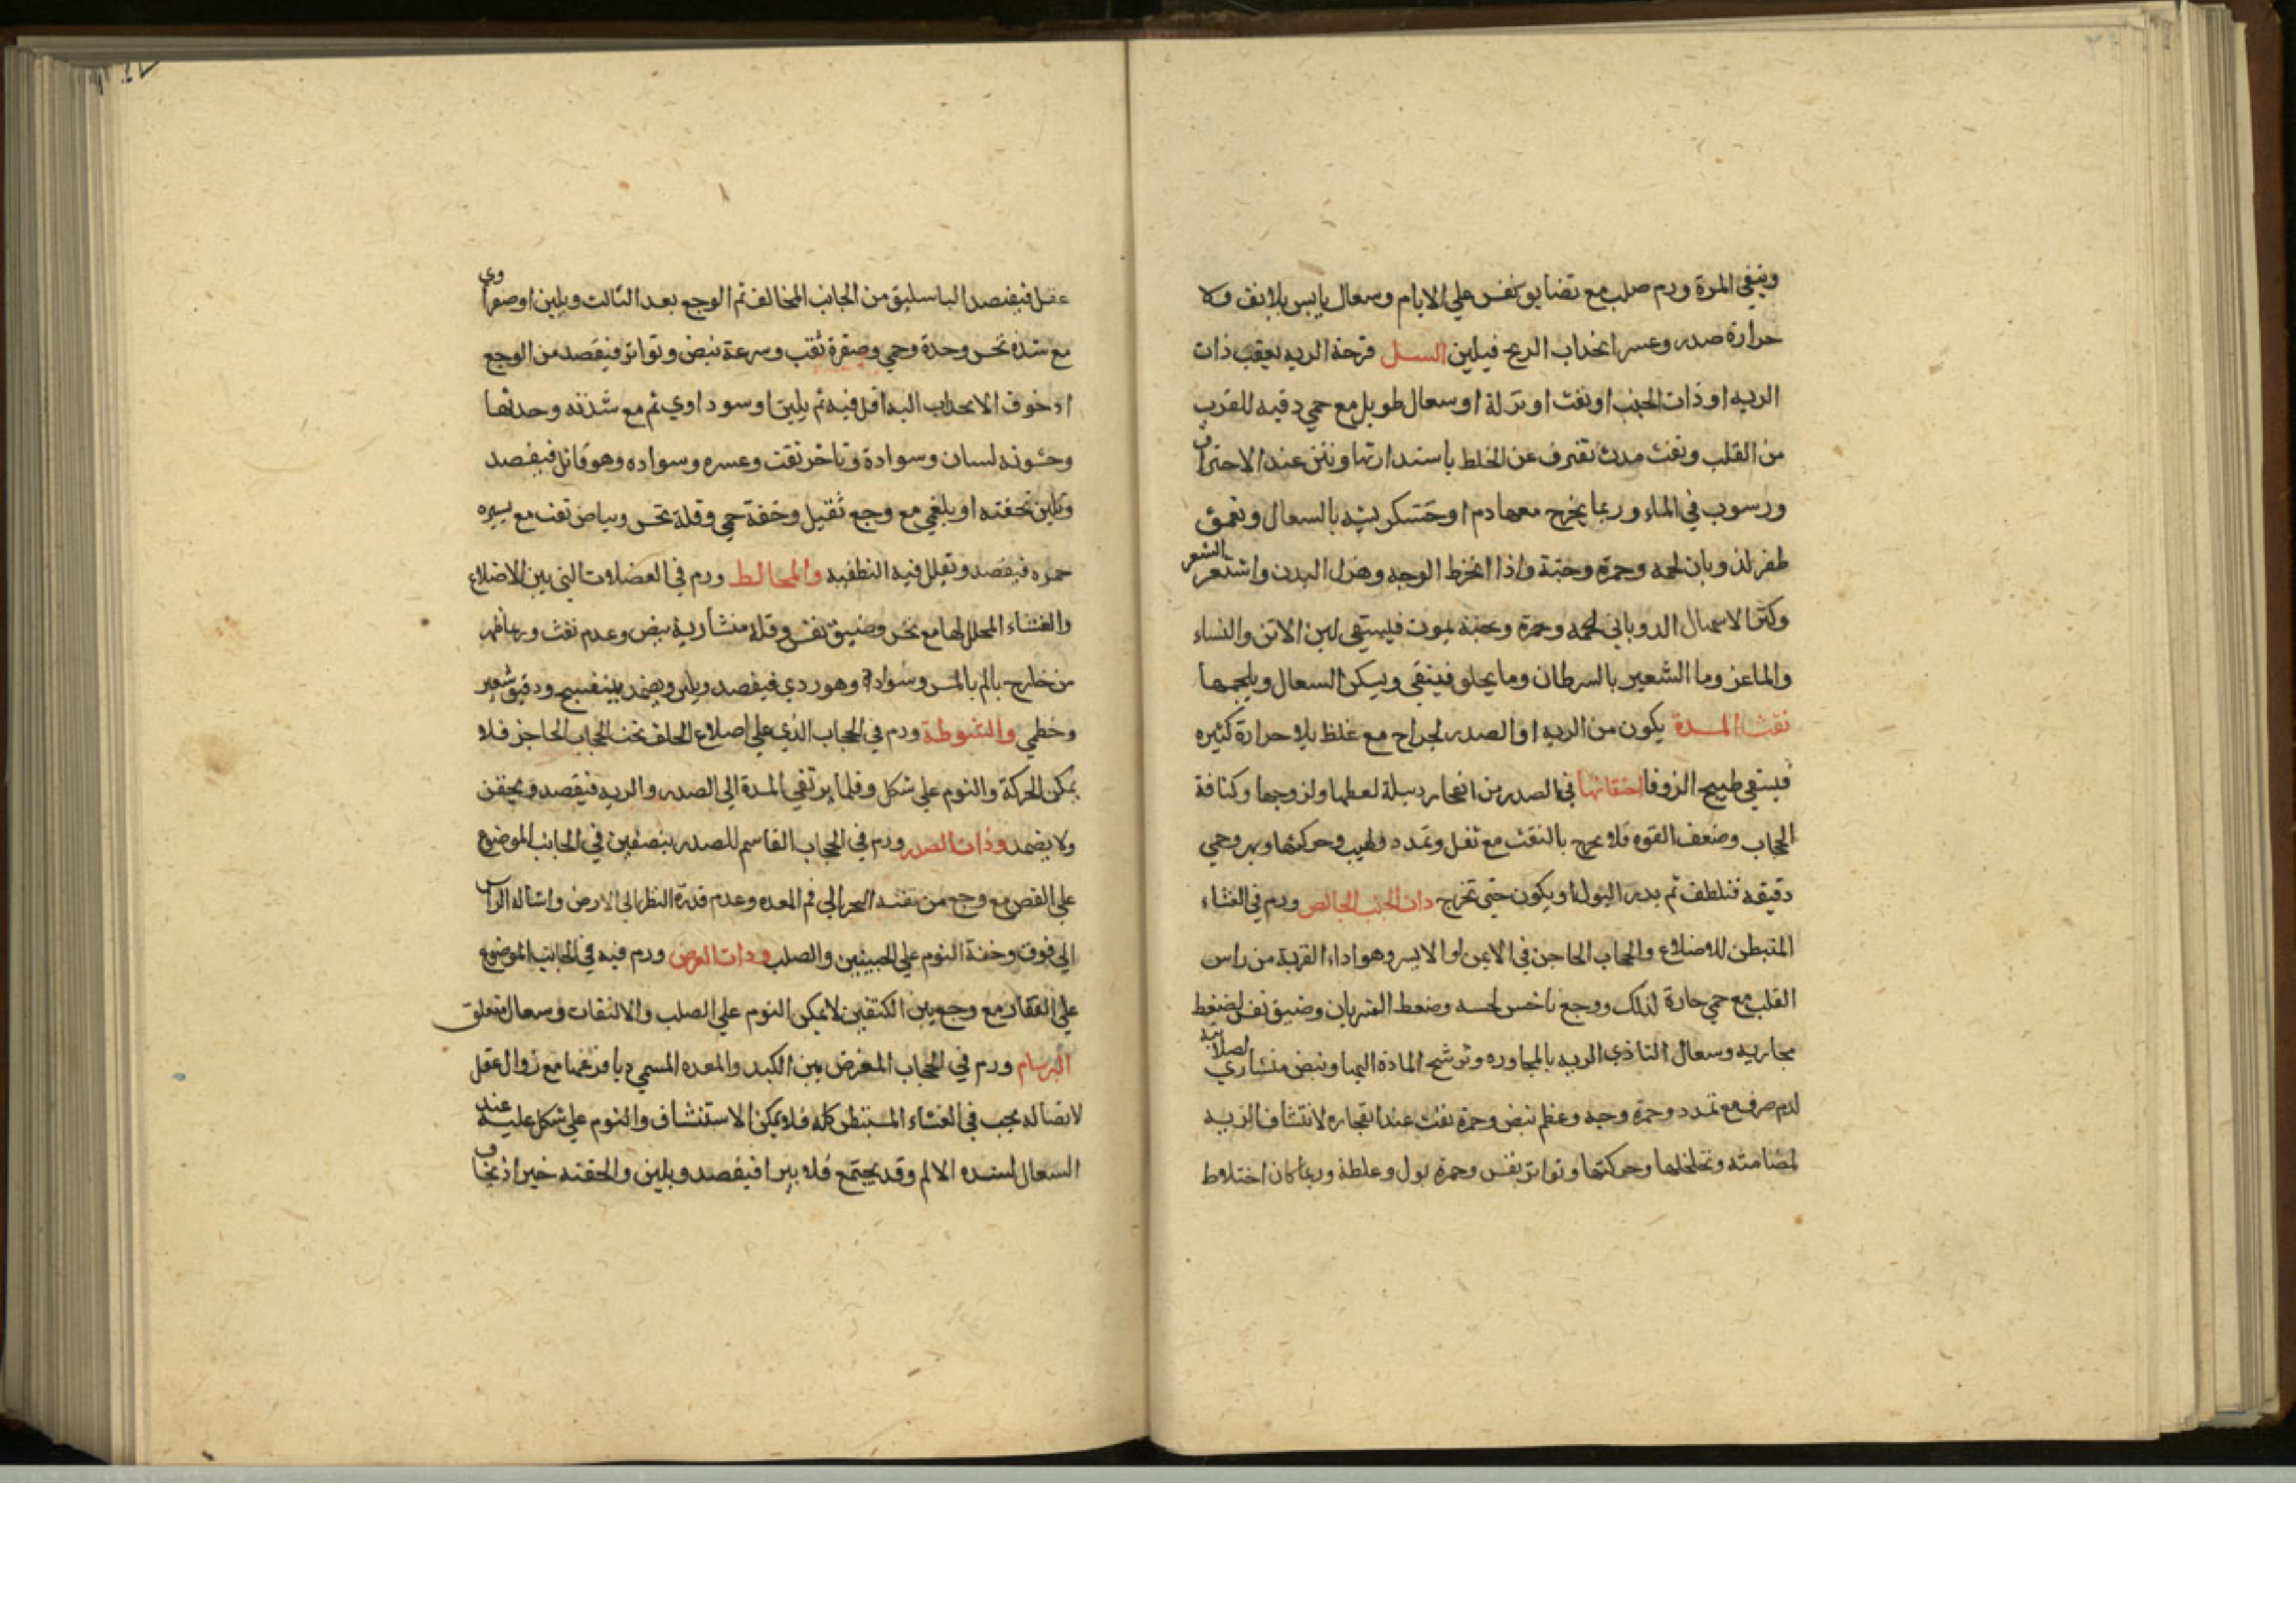 وينقي المرة ورم صلب مع تضايق نفس علي الايام وسعال يابس بلا نفث ولا
حرارة صدر وعسر انجذاب الريح فيلين السل قرحة الريه يعقب ذات
الريه او ذات الجنب او نفث او نزلة او سعال طويل مع حمي دقيه للقرب
من القلب ونفث مدة تفترق عن الخلط باستدارتها ونتن عند الاحتراق
ورسوب في الماء وربما يخرج معها دم او خشكريشه بالسعال وتعمق
ظفر لذوبان لحمه وحمرة وجنة واذا انخرط الوجه وهزل البدن واشتعر الشعر
وكثر الاسهال الذوباني لحمه وحمرة وجنة يموت فيستقي لبن الاتن والنساء
والماعز وما الشعير بالسرطان وما يجلو فينقي ويسكن السعال ويلحمها
نفث المدة يكون من الريه او الصدر لجراح مع غلظ بلا حرارة كثيره
فيسقي طبيخ الزوفا احتقانها في الصدر من انفجار دبيلة لعظمها ولزوجها وكثافة
الحجاب وضعف القوه فلا يخرج بالنفث مع ثقل وتمدد ولهيب وحركتها وبر وحمي
دقيقه فتلطف ثم يدر البول او يكون حتي تخرج ذات الجنب الخالص ورم في الغشاء
المتبطن للاضلاع والحجاب الحاجز في الايمن او الايسر وهو اداء القربة من راس
القلب مع حمي حارة لذلك ووجع ناخس لحسه وضغط الشريان وضيق نفس لضغط
مجاريه وسعال التاذي الريه بالمجاوره وترشح المادة اليها ونبض منشاري لصلابة
لدم صرف مع تمدد وحمرة وجه وعظم نبض وحمرة نفث عند انفجاره لانتشاف الريه
لمضامته وتخلخلها وحركتها وتواتر نفس وحمرة بول وغلظة وربما كان اختلاط
عقل فيفصد الباسليق من الجانب المخالف ثم الوجع بعد الثالث ويلين او صفراوي
مع شدة نخس وحدة وحمي وصفرة نفث وسرعة نبض وتواتر فيفصد من الوجع
اذ خوف الانجذاب اليه اقل فيه ثم يلين او سوداوي ثم مع شدته وحدتها
وخشونه لسان وسوادة وتاخر نفث وعسره وسواده وهو قاتل فيفصد
وتلين بحقنه او بلغمي مع وجع ثقيل وخفة حمي وقلة نخس وبياض نفث مع يسيره
حمره فيفصد وتقلل فيه التطفيه والمخالط ورم في العضلات التي بين الاضلاع
والغشاء المجلل لها مع نخس وضيق نفس وقلة منشارية نبض وعدم نفث وربما ظهر
من خارج بالم بالمس وسوادة وهو ردي فيفصد ويلين ويضمد ببنفسج ودقيق شعير
وخطمي والشوطة ورم في الحجاب الذي علي اضلاع الخلف تحت الحجاب الحاجز فلا
يمكن الحركة والنوم علي شكل وقلما يرتقي المدة الي الصدر والريه فيفصد ويحقن
ولا يضمد وذات الصدر ورم في الحجاب القاسم للصدر بنصفين في الجانب الموضوع
علي القص مع وجع من نقثة النحر الي فم المعده وعدم قدرة النظر الي الارض واشاله الراس
الي فوق وخفة النوم علي الجبينين والصلب وذات العرض ورم فيه في الجانب الموضوع
علي الفقار مع وجع بين الكتفين لا يمكن النوم علي الصلب والالتفات وسعال متعلق
البرسام ورم في الحجاب المعترض بين الكبد والمعده المسمي ديافرغما مع زوال عقل
لاتصاله بحجب في الغشاء المستبطن كله فلا يمكن الاستنشاف والنوم علي شكل عليه عند
السعال لشده الالم وقد يجتمع فلا يبرا فيفصد ويلين والحقنه خير اذ يخاف